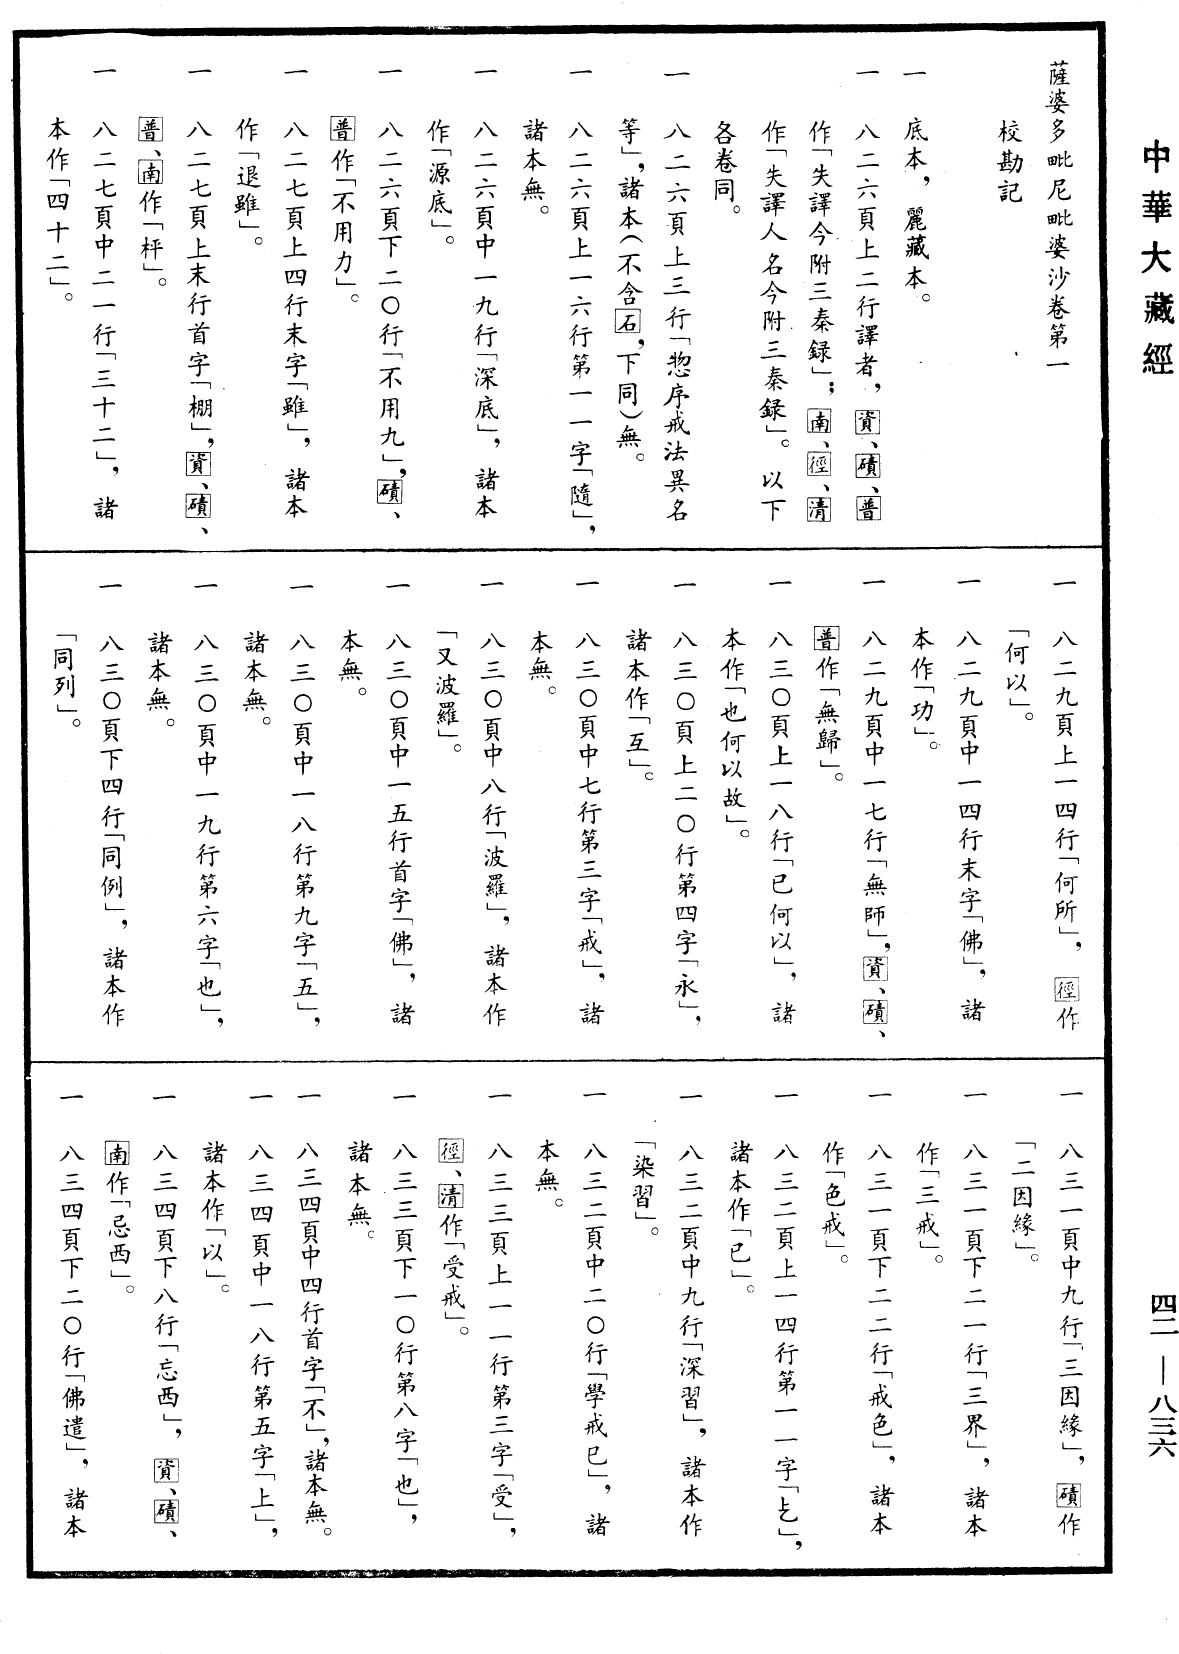 中華大藏經
四二—八三六
薩婆多毗尼毗婆沙卷第一
校勘記
一 底本，麗藏本。
一 八二六頁上二行譯者，資、磧、普
作「失譯今附三秦録」；南、徑、清
作「失譯人名今附三秦録」。以下
各卷同。
一 八二六頁上三行「惣序戒法異名
等」，諸本（不含石，下同）無。
一 八二六頁上一六行第一一字「隨」，
諸本無。
一 八二六頁中一九行「深底」，諸本
作「源底」。
一 八二六頁下二〇行「不用九」，磧、
普作「不用力」。
一 八二七頁上四行末字「雖」，諸本
作「退雖」。
一 八二七頁上末行首字「棚」，資、磧、
普、南作「枰」。
一 八二七頁中二一行「三十二」，諸
本作「四十二」。
一 八二九頁上一四行「何所」，徑作
「何以」。
一 八二九頁中一四行末字「佛」，諸
本作「功」。
一 八二九頁中一七行「無師」，資、磧、
普作「無歸」。
一 八三〇頁上一八行「已何以」，諸
本作「也何以故」。
一 八三〇頁上二〇行第四字「永」，
諸本作「互」。
一 八三〇頁中七行第三字「戒」，諸
本無。
一 八三〇頁中八行「波羅」，諸本作
「又波羅」。
一 八三〇頁中一五行首字「佛」，諸
本無。
一 八三〇頁中一八行第九字「五」，
諸本無。
一 八三〇頁中一九行第六字「也」，
諸本無。
一 八三〇頁下四行「同例」，諸本作
「同列」。
一 八三一頁中九行「三因緣」，磧作
「二因緣」。
一 八三一頁下二一行「三界」，諸本
作「三戒」。
一 八三一頁下二二行「戒色」，諸本
作「色戒」。
一 八三二頁上一四行第一一字「乞」，
諸本作「已」。
一 八三二頁中九行「深習」，諸本作
「染習」。
一 八三二頁中二〇行「學戒巳」，諸
本無。
一 八三三頁上一一行第三字「受」，
徑、清作「受戒」。
一 八三三頁下一〇行第八字「也」，
諸本無。
一 八三四頁中四行首字「不」，諸本無。
一 八三四頁中一八行第五字「上」，
諸本作「以」。
一 八三四頁下八行「忘西」，資、磧、
南作「忌西」。
一 八三四頁下二〇行「佛遣」，諸本